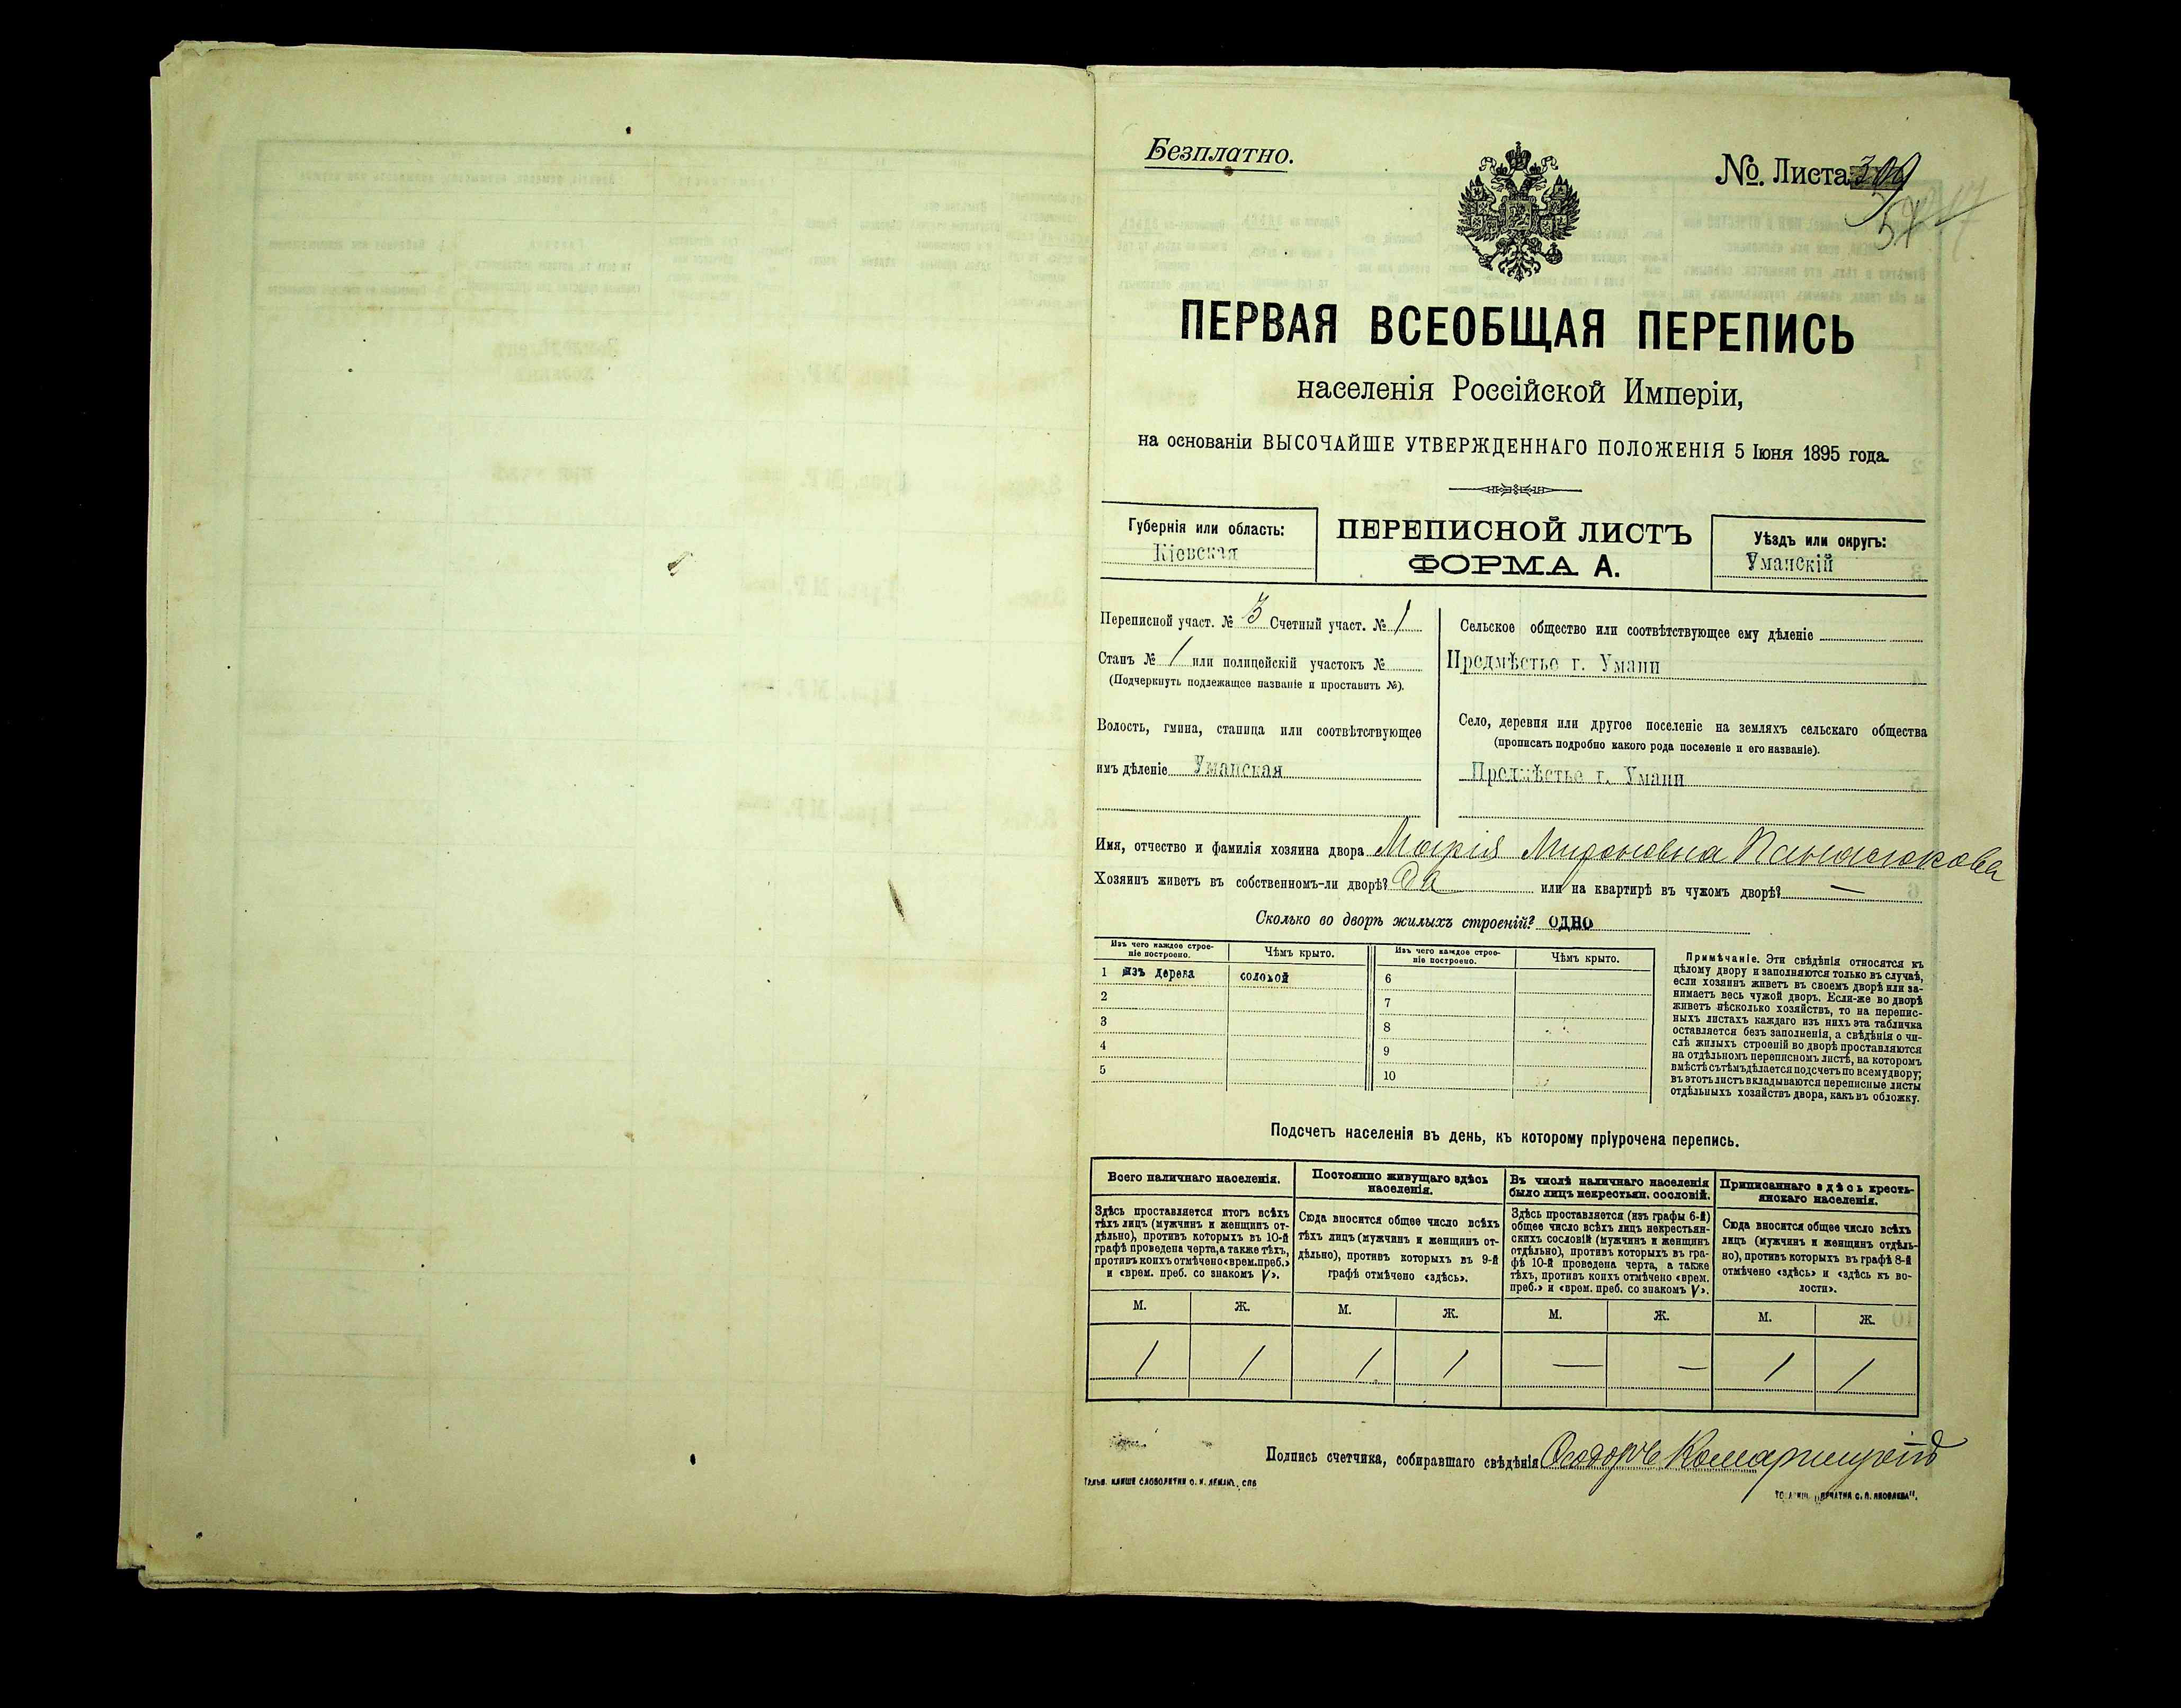 Безплатно.
№. Листа 309
57
ПЕРВАЯ ВСЕОБЩАЯ ПЕРЕПИСЬ
населенія Россійской Имперіи,
на основаніи ВЫСОЧАЙШЕ УТВЕРЖДЕННАГО ПОЛОЖЕНІЯ 5 Іюня 1895 года.
Губернія или область:
Кіевская
ПЕРЕПИСНОЙ ЛИСТЪ
ФОРМА А.
Уѣздъ или округъ:
Уманскій
Переписной участ. № 3 Счетный участ. № 1
Станъ № 1 или полицейскій участокъ №
(Подчеркнуть подлежащее названіе и проставить №).
Волость, гмина, станица или соотвѣтствующее
имъ дѣленіе Уманская
Сельское общество или соотвѣтствующее ему дѣленіе
Предмѣстье г. Умани
Село, деревня или другое поселеніе на земляхъ сельскаго общества
(прописать подробно какого рода поселеніе и его названіе).
Предмѣстье г. Умани
Имя, отчество и фамилія хозяина двора Марія Мироновна Панасюкова
Хозяинъ живетъ въ собственномъ-ли дворѣ? Да или на квартирѣ въ чужомъ дворѣ? —
Сколько во дворѣ жилыхъ строеній? одно
Изъ чего каждое строе-
ніе построено.
Чѣмъ крыто.
Изъ чего каждое строе-
ніе построено.
Чѣмъ крыто.
1 изъ дерева соломой 6
2 7
3 8
4 9
5 10
Примѣчаніе. Эти свѣдѣнія относятся къ
цѣлому двору и заполняются только въ случаѣ,
если хозяинъ живетъ въ своемъ дворѣ или за-
нимаетъ весь чужой дворъ. Если-же во дворѣ
живетъ нѣсколько хозяйствъ, то на перепис-
ныхъ листахъ каждаго изъ нихъ эта табличка
оставляется безъ заполненія, а свѣдѣнія о чи-
слѣ жилыхъ строеній во дворѣ проставляются
на отдѣльномъ переписномъ листѣ, на которомъ
вмѣстѣ съ тѣмъ дѣлается подсчетъ по всему двору;
въ этотъ листъ вкладываются переписные листы
отдѣльныхъ хозяйствъ двора, какъ въ обложку.
Подсчетъ населенія въ день, къ которому пріурочена перепись.
Всего наличнаго населенія.
Здѣсь проставляется итогъ всѣхъ
тѣхъ лицъ (мужчинъ и женщинъ от-
дѣльно), противъ которыхъ въ 10-й
графѣ проведена черта, а также тѣхъ,
противъ коихъ отмѣчено «врем. преб.»
и «врем. преб. со знакомъ V».
М. Ж.
1 1
Постоянно живущаго здѣсь
населенія.
Сюда вносится общее число всѣхъ
тѣхъ лицъ (мужчинъ и женщинъ от-
дѣльно), противъ которыхъ въ 9-й
графѣ отмѣчено «здѣсь».
М. Ж.
1 1
Въ числѣ наличнаго населенія
было лицъ некрестьян. сословій.
Здѣсь проставляется (изъ графы 6-й)
общее число всѣхъ лицъ некрестьян-
скихъ сословій (мужчинъ и женщинъ
отдѣльно), противъ которыхъ въ гра-
фѣ 10-й проведена черта, а также
тѣхъ, противъ коихъ отмѣчено «врем.
преб.» и «врем. преб. со знакомъ V».
М. Ж.
— —
Приписаннаго здѣсь кресть-
янскаго населенія.
Сюда вносится общее число всѣхъ
лицъ (мужчинъ и женщинъ отдѣль-
но), противъ которыхъ въ графѣ 8-й
отмѣчено «здѣсь» и «здѣсь къ во-
лости».
М. Ж.
1 1
Подпись счетчика, собиравшаго свѣдѣнія Ѳеодоръ Комарницкій
КЛИШЕ СЛОВОЛИТНИ О. И. ЛЕМАНЪ, СПБ
ПЕЧАТНЯ С. П. ЯКОВЛЕВА".